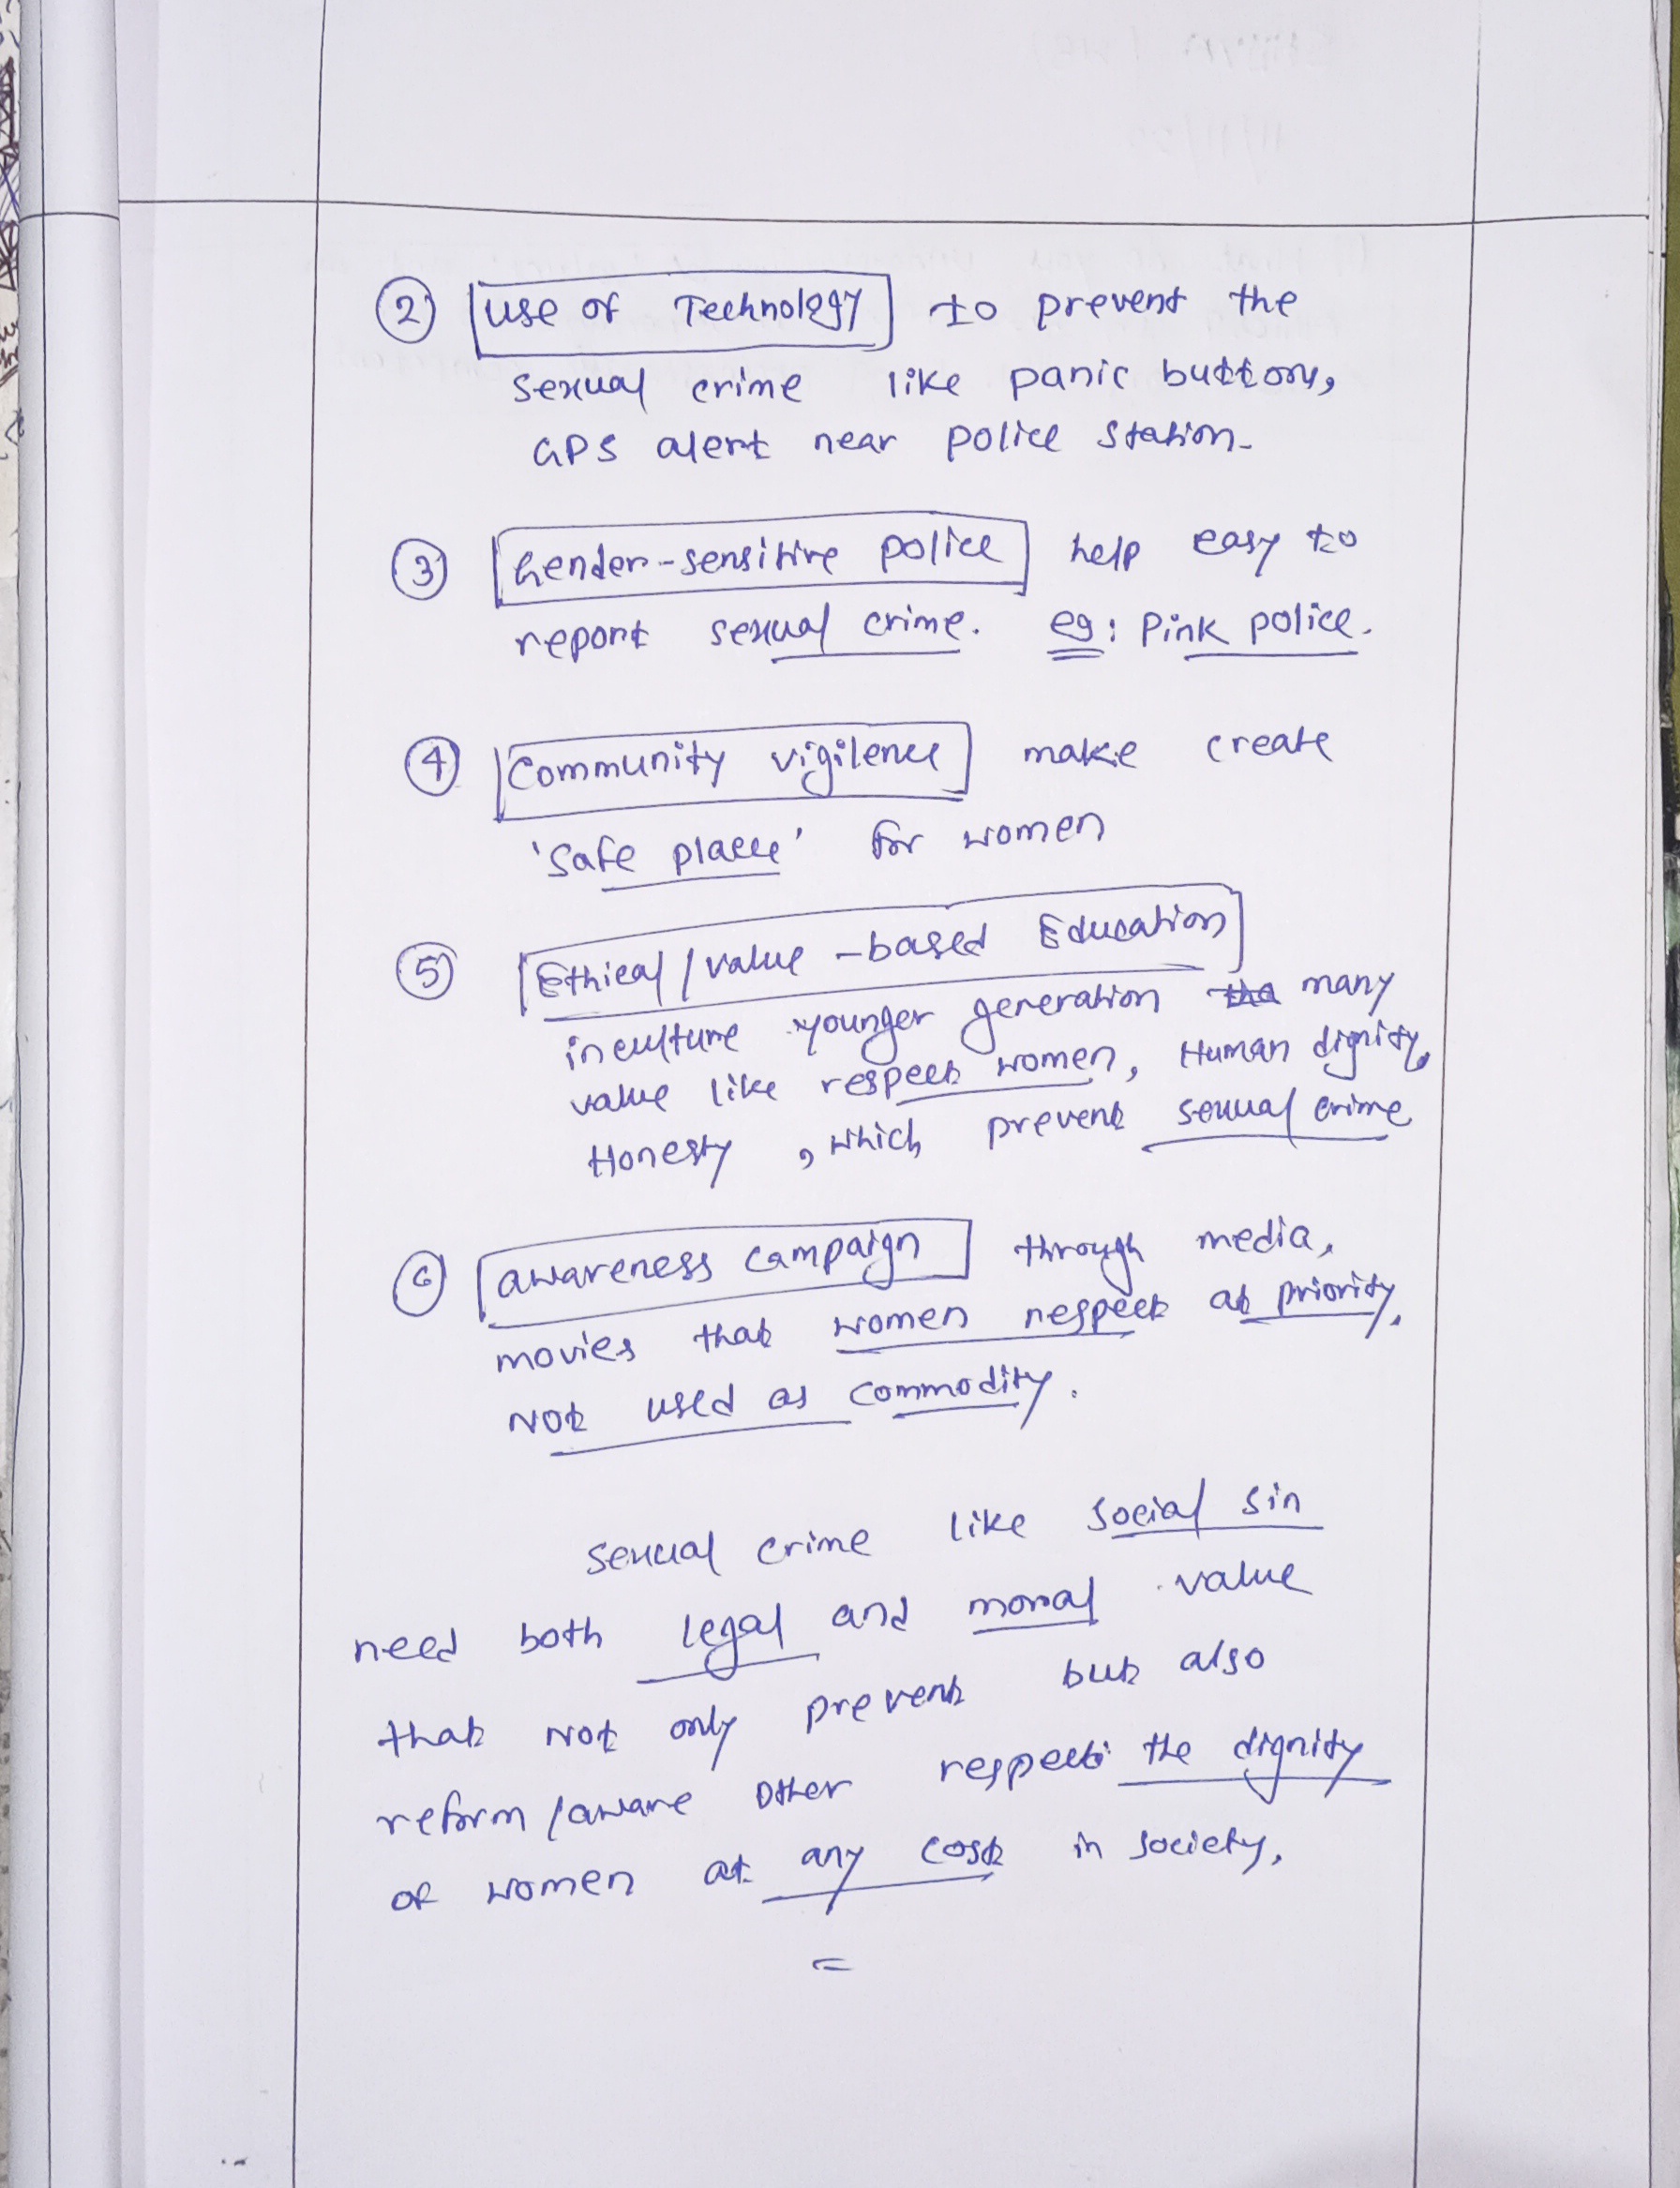 ② Use of Technology to prevent the
sexual crime like panic buttons,
GPS alert near police station.
③ Gender-sensitive police help easy to
report sexual crime. eg: Pink police.
④ Community vigilence make create
'safe place' for women
⑤ Ethical / value-based Education
inculture younger generation many
value like respect women, Human dignity,
Honesty, which prevent sexual crime
⑥ awareness campaign through media,
movies that women respect at priority,
Not used as commodity.
sexual crime like social sin
need both legal and moral value
that Not only prevent but also
reform / aware other respect the dignity
of women at any cost in society,